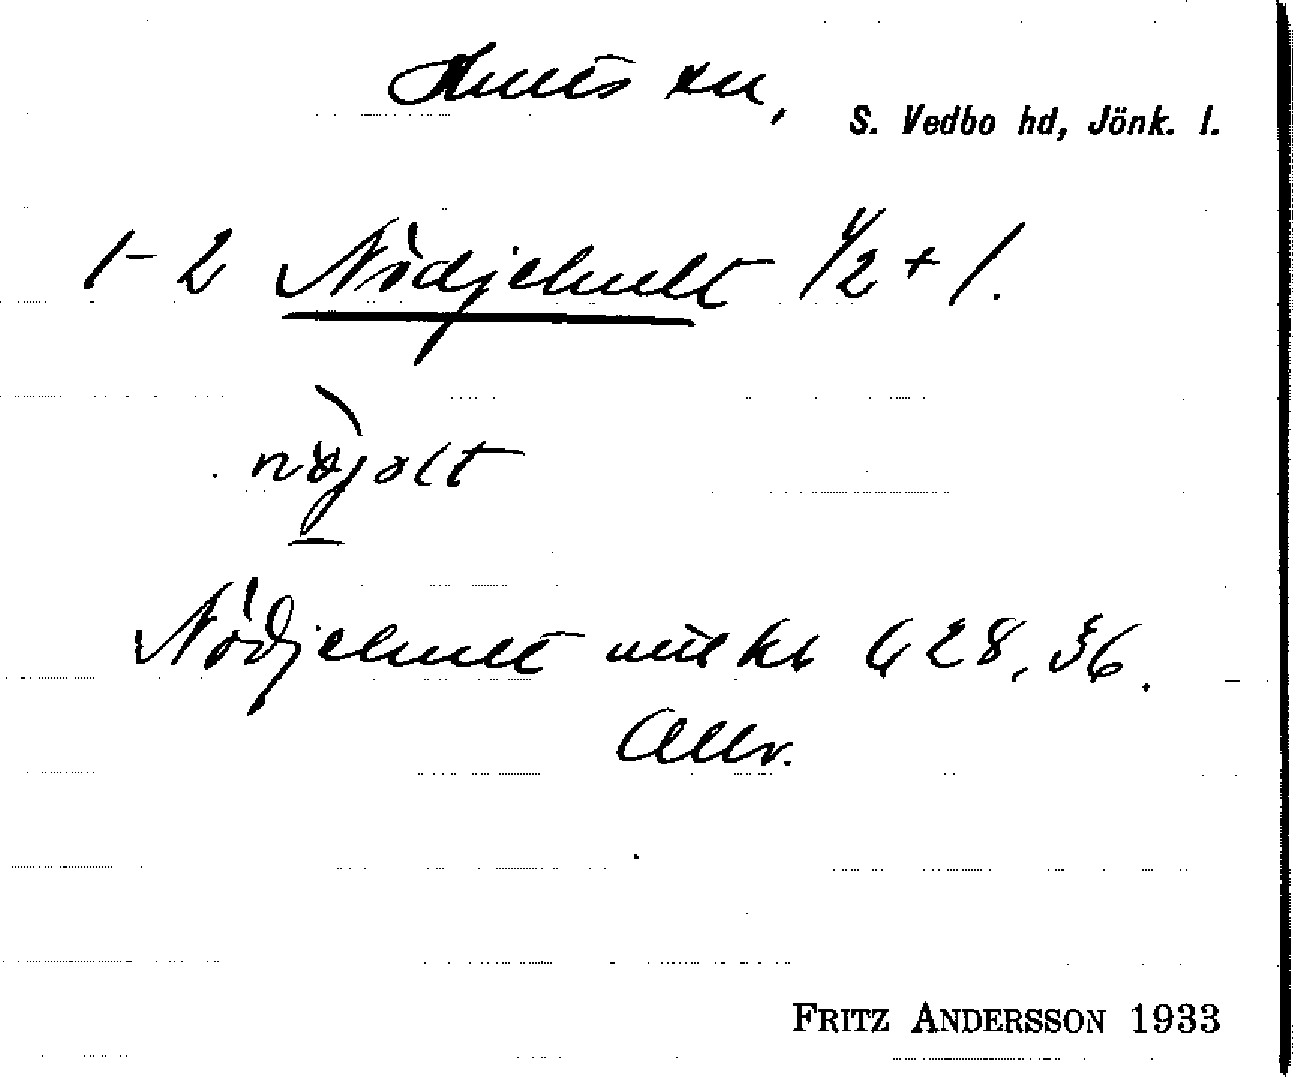 Hults sn, S. Vedbo hd, Jönk. l.
1-2 Nödjehult 1/2 + 1.
nøjølt
Nödjehult utl kb 628, 36.
Allv.
FRITZ ANDERSSON 1933